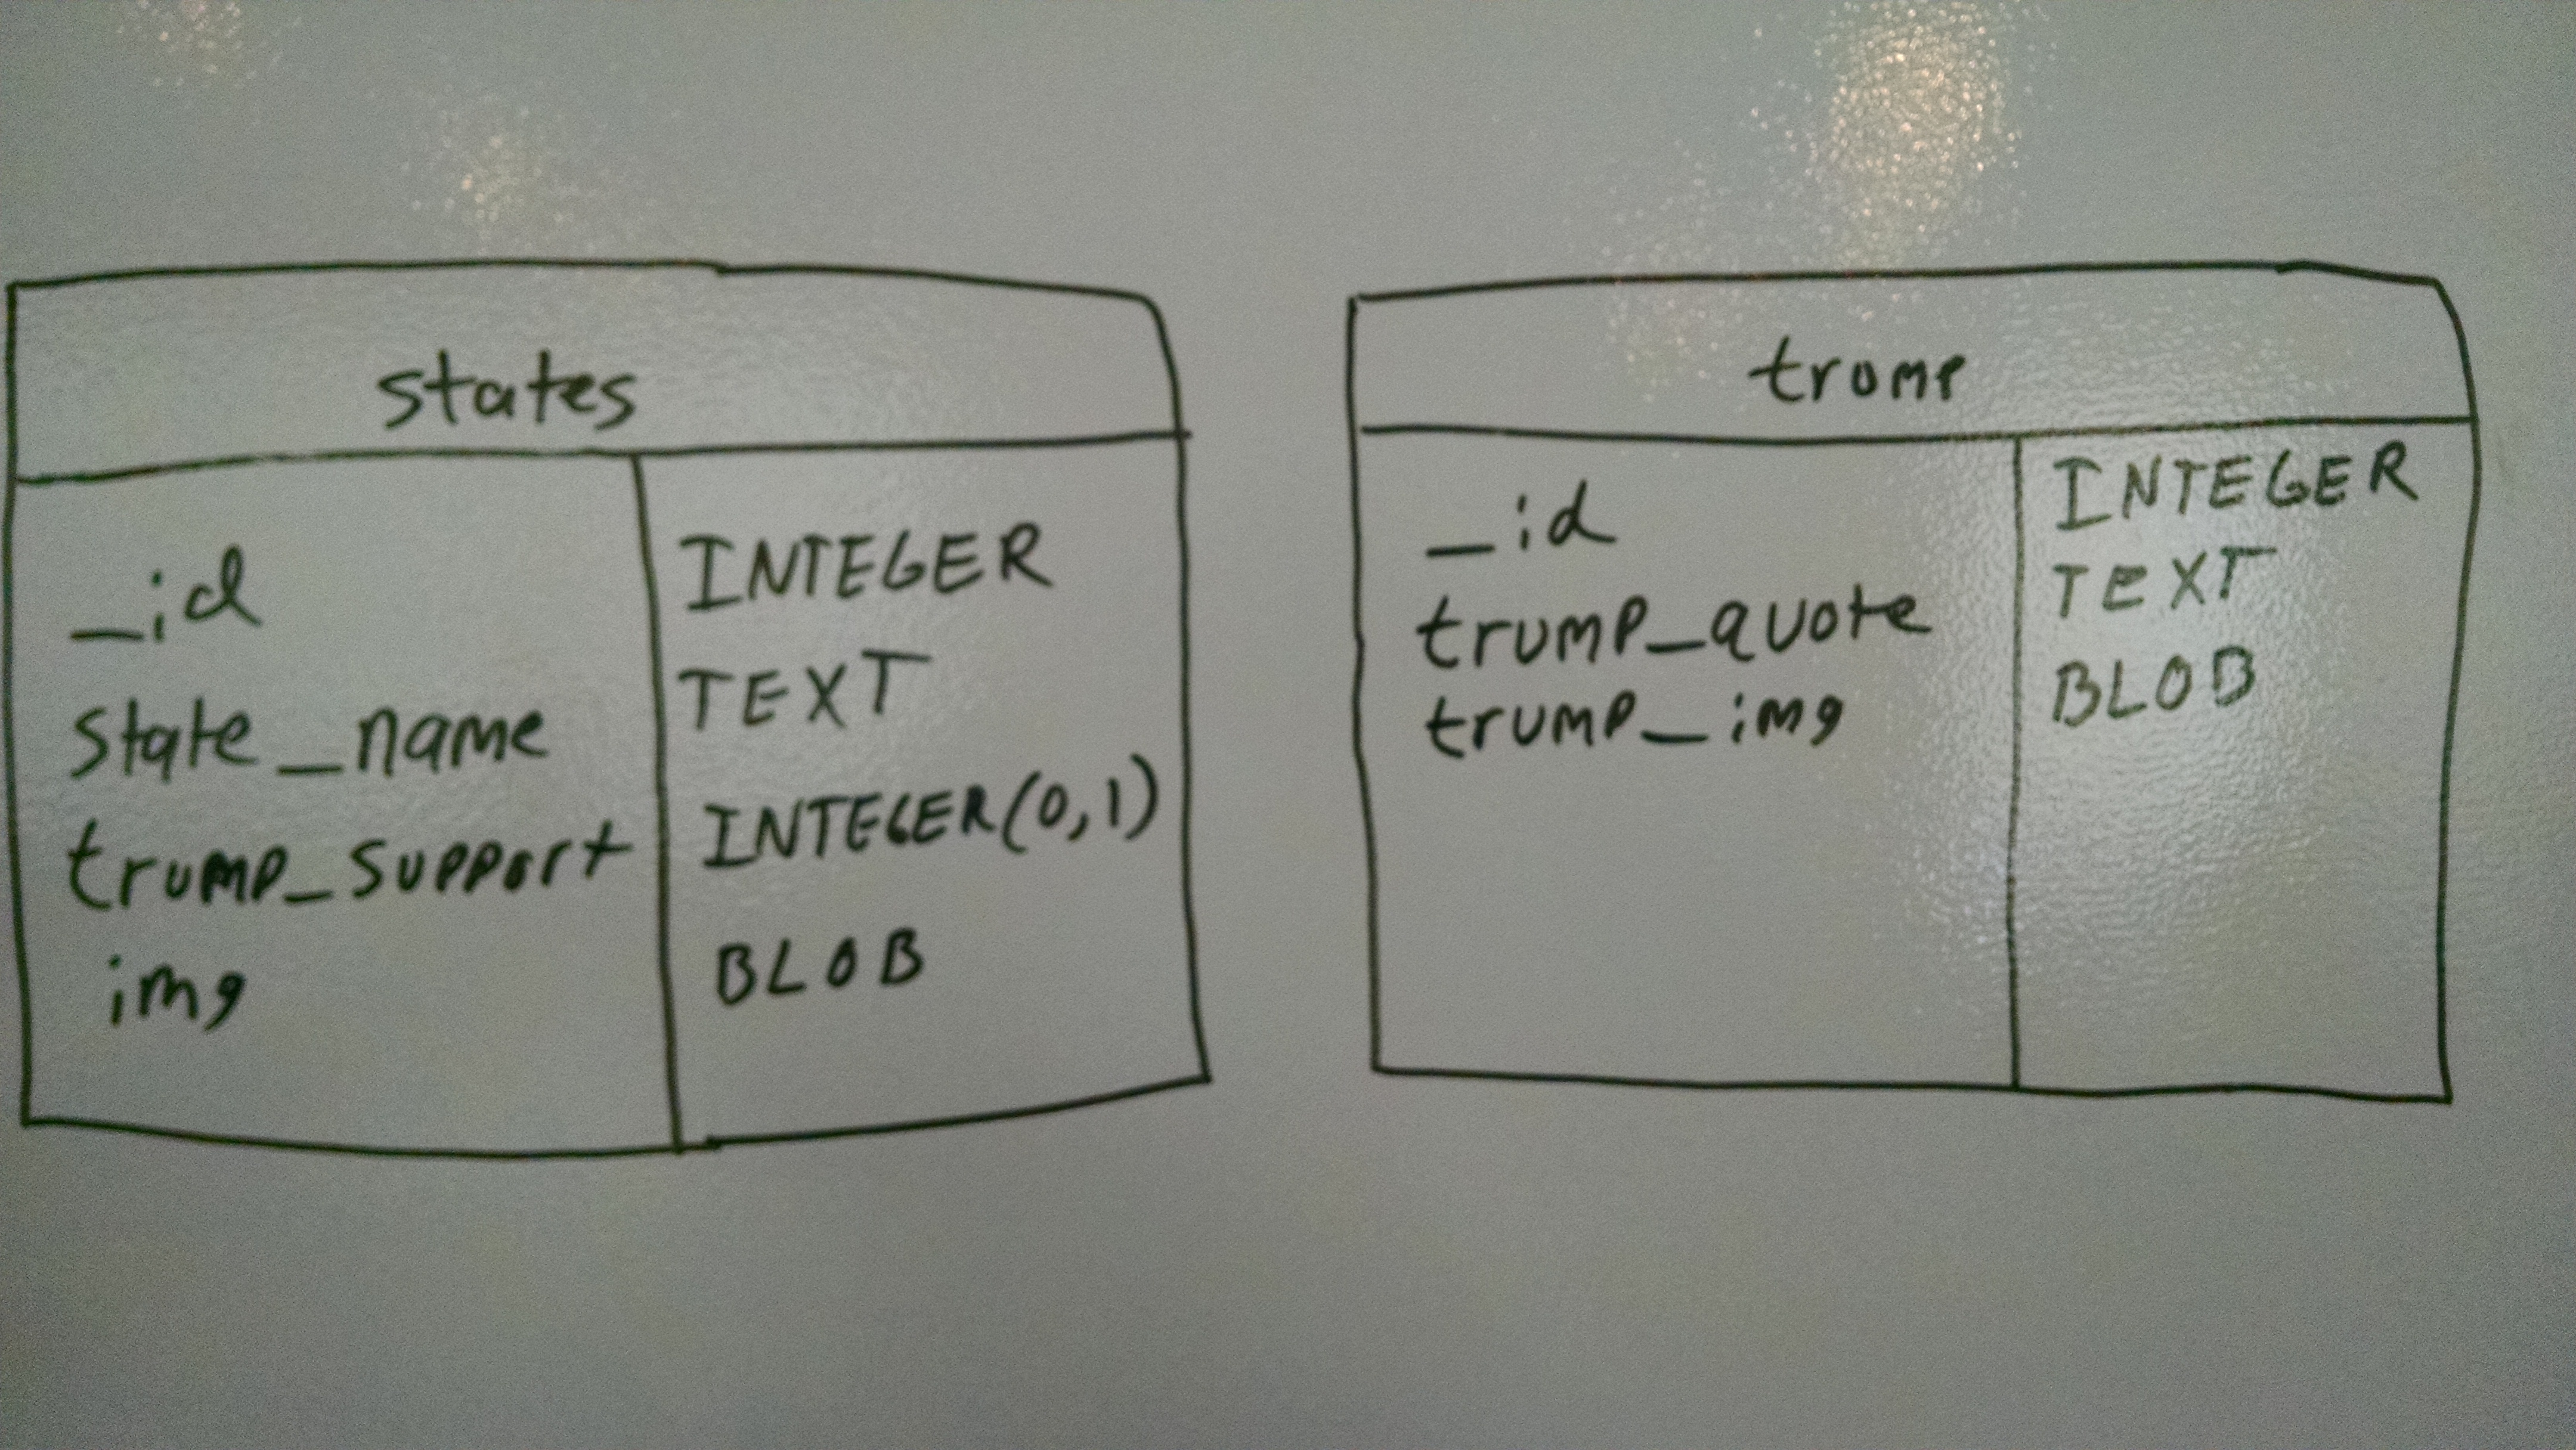 states
_id INTEGER
state_name TEXT
trump_support INTEGER(0,1)
img BLOB
trump
_id INTEGER
trump_quote TEXT
trump_img BLOB